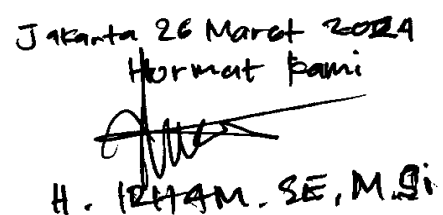 Jakarta 26 Maret 2024
Hormat kami
H. IRHAM. SE, M.Si